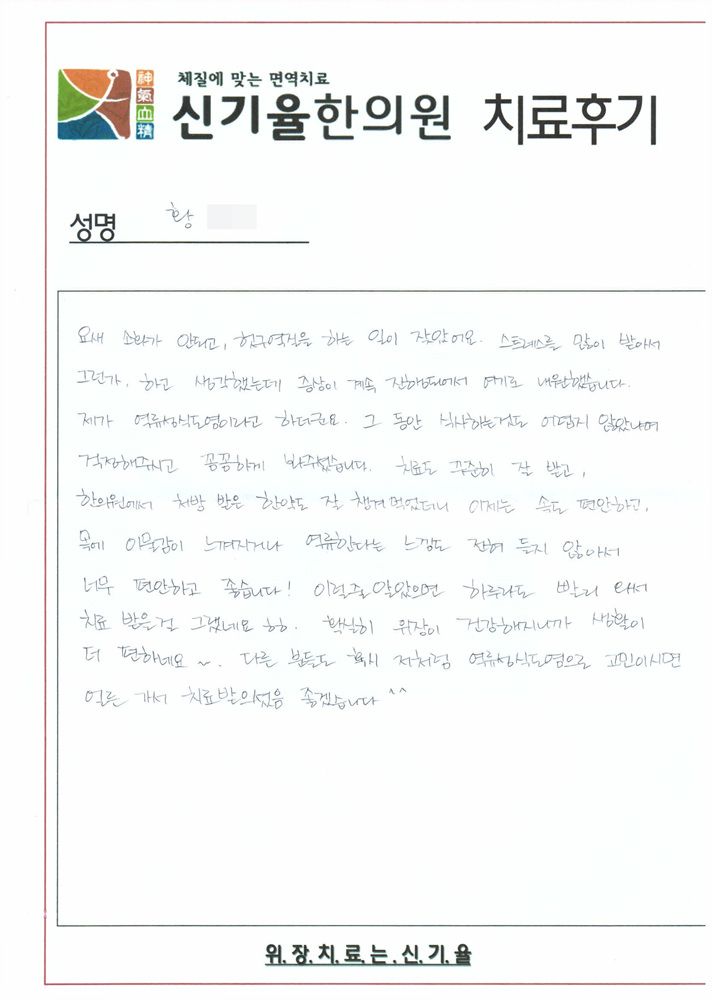 체질에 맞는 면역치료
神氣血精
신기율한의원 치료후기
성명 황
요새 소화가 안되고, 헛구역질을 하는 일이 잦았어요. 스트레스를 많이 받아서
그런가, 하고 생각했는데 증상이 계속 진행돼에서 여기로 내원했습니다.
제가 역류성식도염이라고 하더군요. 그 동안 식사하는것도 어렵지 않았냐며
걱정해주시고 꼼꼼하게 봐주셨습니다. 치료도 꾸준히 잘 받고,
한의원에서 처방 받은 한약도 잘 챙겨먹었더니 이제는 속도 편안하고,
목에 이물감이 느껴지거나 역류한다는 느낌도 전혀 들지 않아서
너무 편안하고 좋습니다! 이럴줄 알았으면 하루라도 빨리 와서
치료 받을걸 그랬네요 ㅎㅎ. 확실히 위장이 건강해지니까 생활이
더 편하네요~. 다른 분들도 혹시 저처럼 역류성식도염으로 고민이시면
얼른 가서 치료받으셨음 좋겠습니다^^
위.장.치.료.는.신.기.율